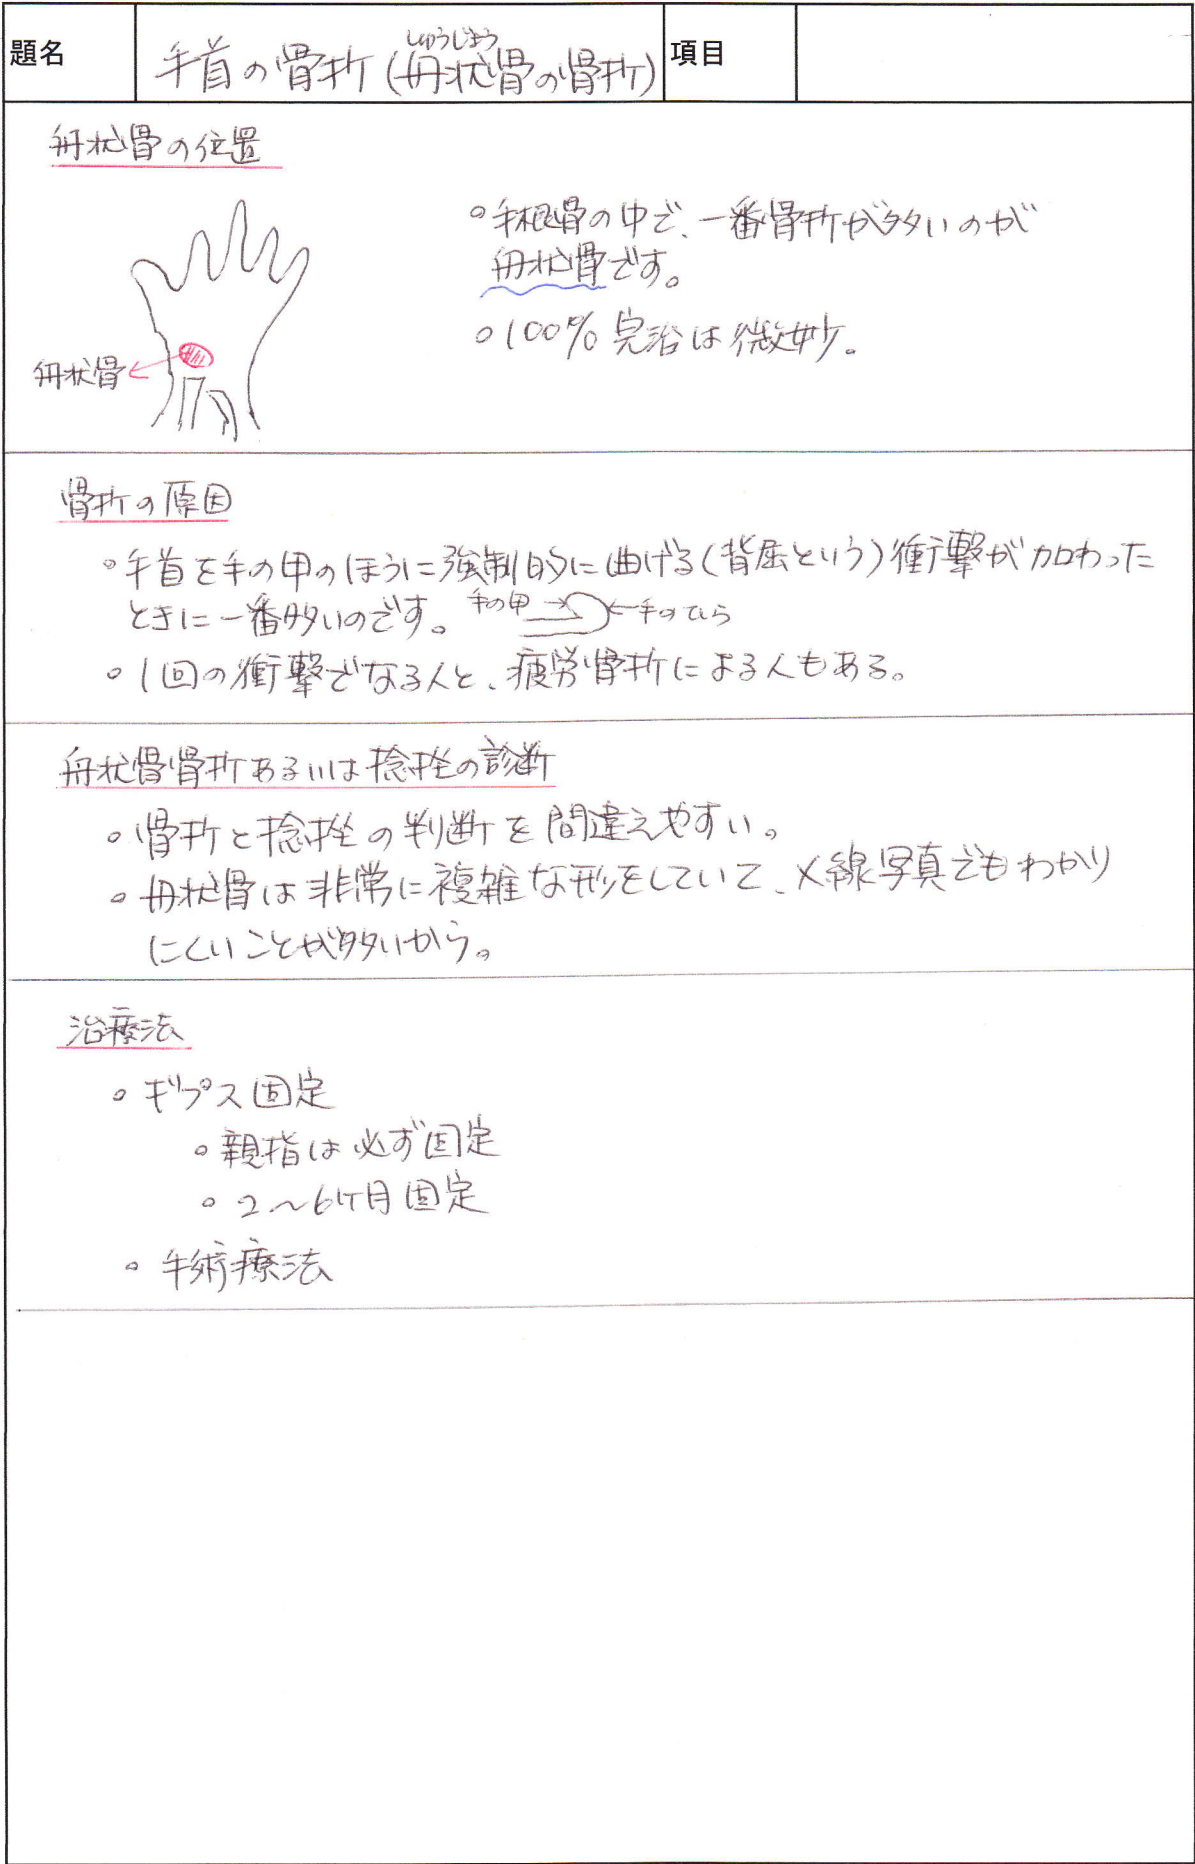 題名
手首の骨折(舟状骨の骨折)
しゅうじょう
項目
舟状骨の位置
舟状骨
○手根骨の中で、一番骨折が多いのが
舟状骨です。
○100%完治は微妙。
骨折の原因
○手首を手の甲のほうに強制的に曲げる(背屈という)衝撃が加わった
ときに一番多いのです。
手の甲
手のひら
○1回の衝撃でなる人と、疲労骨折による人もある。
舟状骨骨折あるいは捻挫の診断
○骨折と捻挫の判断を間違えやすい。
○舟状骨は非常に複雑な形をしていて、X線写真でもわかり
にくいことが多いから。
治療法
○ギプス固定
○親指は必ず固定
○2〜6ケ月固定
○手術療法